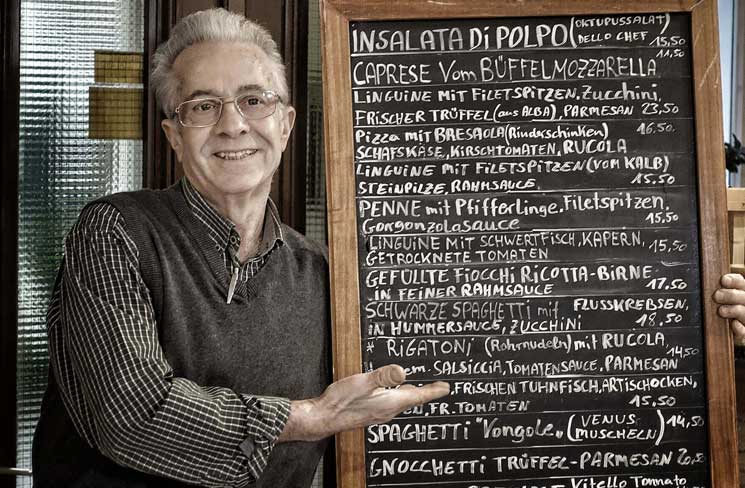 INSALATA Di POLPO (OKTUPUSSALAT)
DELLO CHEF 15,50
11,50
CAPRESE Vom BÜFFELMOZZARELLA
LINGUINE MIT FILETSPITZEN, Zucchini,
FRISCHER TRÜFFEL (aus ALBA), PARMESAN 23,50
Pizza mit BRESAOLA (Rinderschinken) 16,50
SCHAFSKÄSE, KIRSCHTOMATEN, RUCOLA
LINGUINE MIT FILETSPITZEN (VOM KALB)
STEINPILZE, RAHMSAUCE 15,50
PENNE mit Pfifferlinge, Filetspitzen,
Gorgonzolasauce 15,50
LINGUINE MIT SCHWERTFISCH, KAPERN,
GETROCKNETE TOMATEN 15,50
GEFÜLLTE FIOCCHI RICOTTA-BIRNE
IN FEINER RAHMSAUCE 17,50
SCHWARZE SPAGHETTI mit FLUSSKREBSEN,
IN HUMMERSAUCE, ZUCCHINI 18,50
* RIGATONI (Rohrnudeln) mit RUCOLA,
SALSICCIA, TOMATENSAUCE, PARMESAN 14,50
FRISCHEN TUHNFISCH, ARTISCHOCKEN,
FR. TOMATEN 15,50
SPAGHETTI "Vongole" (VENUS MUSCHELN) 14,50
GNOCCHETTI TRÜFFEL-PARMESAN 20,50
Vitello Tonnato